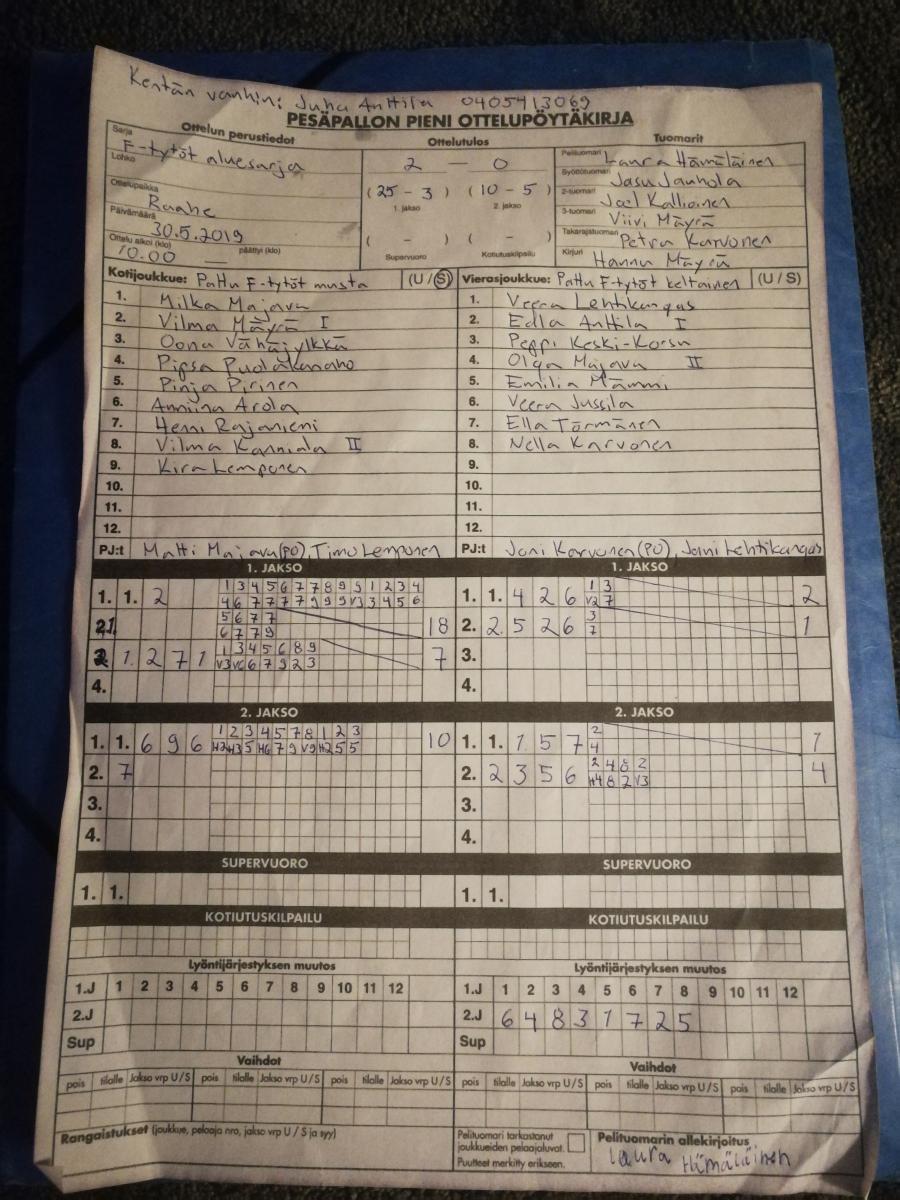 Kentän vanhin: Juha Anttila 0405413069
PESÄPALLON PIENI OTTELUPÖYTÄKIRJA
Ottelun perustiedot
Sarja
F-tytöt aluesarja
Lohko
Ottelupaikka
Raahe
Päivämäärä
30.5.2019
Ottelu alkoi (klo) päättyi (klo)
10.00 —
Ottelutulos
2 — 0
(25 - 3) (10 - 5)
1. jakso 2. jakso
( - ) ( - )
Supervuoro Kotiutuskilpailu
Tuomarit
Pelituomari Laura Hämäläinen
Syöttötuomari Jasu Jauhola
2-tuomari Joel Kallioinen
3-tuomari Viivi Mäyrä
Takarajatuomari Petra Karvonen
Kirjuri Hannu Mäyrä
Kotijoukkue: Pattu F-tytöt musta (U / S)
1. Milka Majava
2. Vilma Mäyrä I
3. Oona Vähäjylkkä
4. Pipsa Puolakanaho
5. Pinja Pirinen
6. Anniina Arola
7. Henni Rajaniemi
8. Vilma Kanniala II
9. Kira Lemponen
10.
11.
12.
PJ:t Matti Majava (PO), Timo Lemponen
Vierasjoukkue: Pattu F-tytöt keltainen (U / S)
1. Veera Lehtikangas
2. Edla Anttila I
3. Peppi Keski-Korsu
4. Olga Majava II
5. Emilia Mämmi
6. Veera Jussila
7. Ella Törmänen
8. Nella Karvonen
9.
10.
11.
12.
PJ:t Joni Karvonen (PO), Jani Lehtikangas
1. JAKSO
1. 1. 2
1 3 4 5 6 7 7 8 9 9 1 2 3 4
4 6 7 7 7 7 9 9 9 V3 3 4 5 6
5 6 7 7
6 7 7 9
18
1. 2 7 1
1 3 4 5 6 8 9
V3 V6 6 7 9 2 3
7
4.
1. JAKSO
1. 1. 4 2 6
1 3
V2 7
2
2. 2. 5 2 6
3
7
1
3.
4.
2. JAKSO
1. 1. 6 9 6
1 2 3 4 5 7 8 1 2 3
H2 H3 5 H6 7 9 V9 H2 5 5
10
2. 7
3.
4.
2. JAKSO
1. 1. 1 5 7
2
4
1
2. 2 3 5 6
2 4 8 2
H4 8 2 V3
4
3.
4.
SUPERVUORO
1. 1.
SUPERVUORO
1. 1.
KOTIUTUSKILPAILU
KOTIUTUSKILPAILU
Lyöntijärjestyksen muutos
1.J 1 2 3 4 5 6 7 8 9 10 11 12
2.J
Sup
Lyöntijärjestyksen muutos
1.J 1 2 3 4 5 6 7 8 9 10 11 12
2.J 6 4 8 3 1 7 2 5
Sup
Vaihdot
pois tilalle Jakso vrp U / S pois tilalle Jakso vrp U / S pois tilalle Jakso vrp U / S
Vaihdot
pois tilalle Jakso vrp U / S pois tilalle Jakso vrp U / S pois tilalle Jakso vrp U / S
Rangaistukset (joukkue, pelaaja nro, jakso vrp U / S ja syy)
Pelituomari tarkastanut
joukkueiden pelaajaluvat.
Puutteet merkitty erikseen.
Pelituomarin allekirjoitus
Laura Hämäläinen